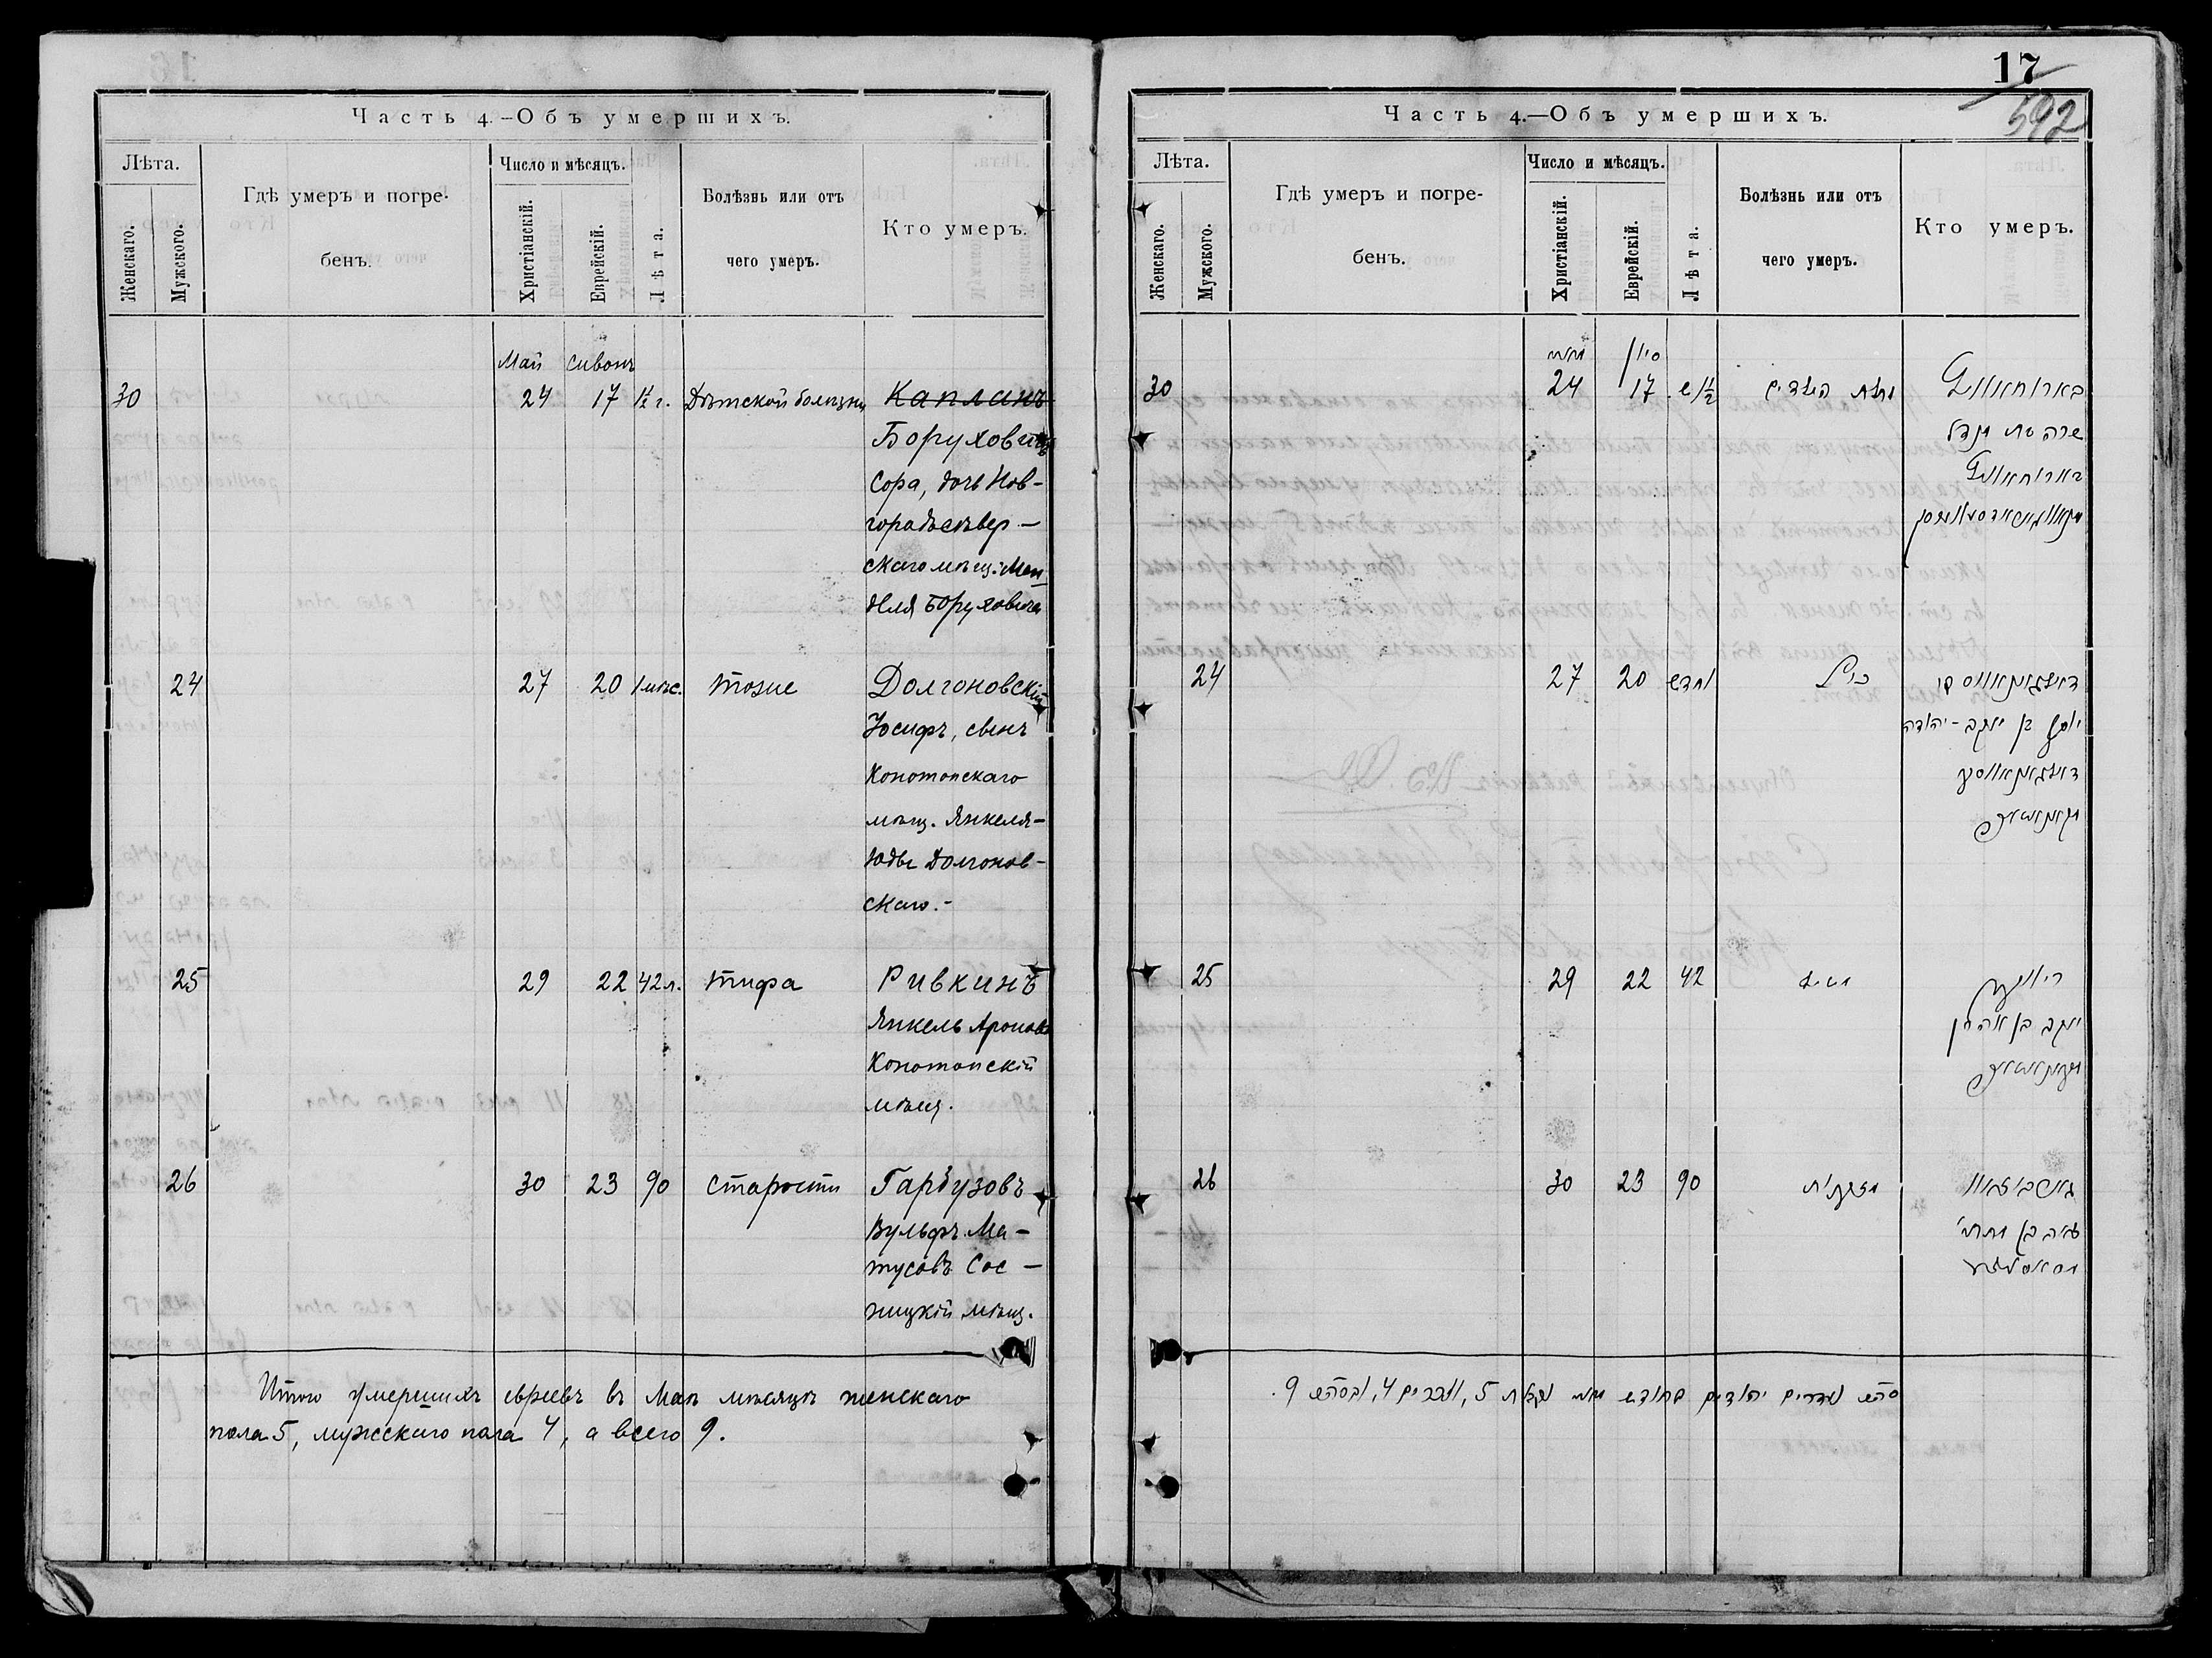 Часть 4.-Объ умершихъ.
Лѣта.
Женскаго.
Мужского.
Гдѣ умеръ и погре-
бенъ.
Число и мѣсяцъ.
Христіанскій.
Еврейскій.
Лѣта.
Болѣзнь или отъ
чего умеръ.
Кто умеръ.
Май сивонъ
30 24 17 1½ г. Дѣтской болѣзни Капланъ
Боруховичъ
Сора, дочь Нов-
городсѣвер-
скаго мѣщ. Мен-
деля Боруховича
24 27 20 1 мѣс. тоже Долгоновскій
Іосифъ, сынъ
Конотопскаго
мѣщ. Янкеля-
Юды Долгонов-
скаго.-
25 29 22 42 л. тифа Ривкинъ
Янкель Ароновъ
Конотопскій
мѣщ.
26 30 23 90 старости Гарбузовъ
Вульфъ Ма-
тусовъ Сос-
ницкій мѣщ.
Итого умершихъ евреевъ въ Маѣ мѣсяцѣ женскаго
пола 5, мужскаго пола 4, а всего 9.
17
592
Часть 4.—Объ умершихъ.
Лѣта.
Женскаго.
Мужского.
Гдѣ умеръ и погре-
бенъ.
Число и мѣсяцъ.
Христіанскій.
Еврейскій.
Лѣта.
Болѣзнь или отъ
чего умеръ.
Кто умеръ.
מאי סיון
30 24 17 1½ ש מחלת הילדים בארוחאוויץ
שרה בת מענדל
בארוחאוויץ
24 27 20 1 חדש כנ"ל
יוסף בן יעקב-יהודה
25 29 22 42 ריווקין
יעקב בן אהרן
26 30 23 90 מזקנות
זאב בן מתתי'
סה"כ נפטרים יהודים בחודש מאי נקבות 5, וזכרים 4, ובסה"כ 9.